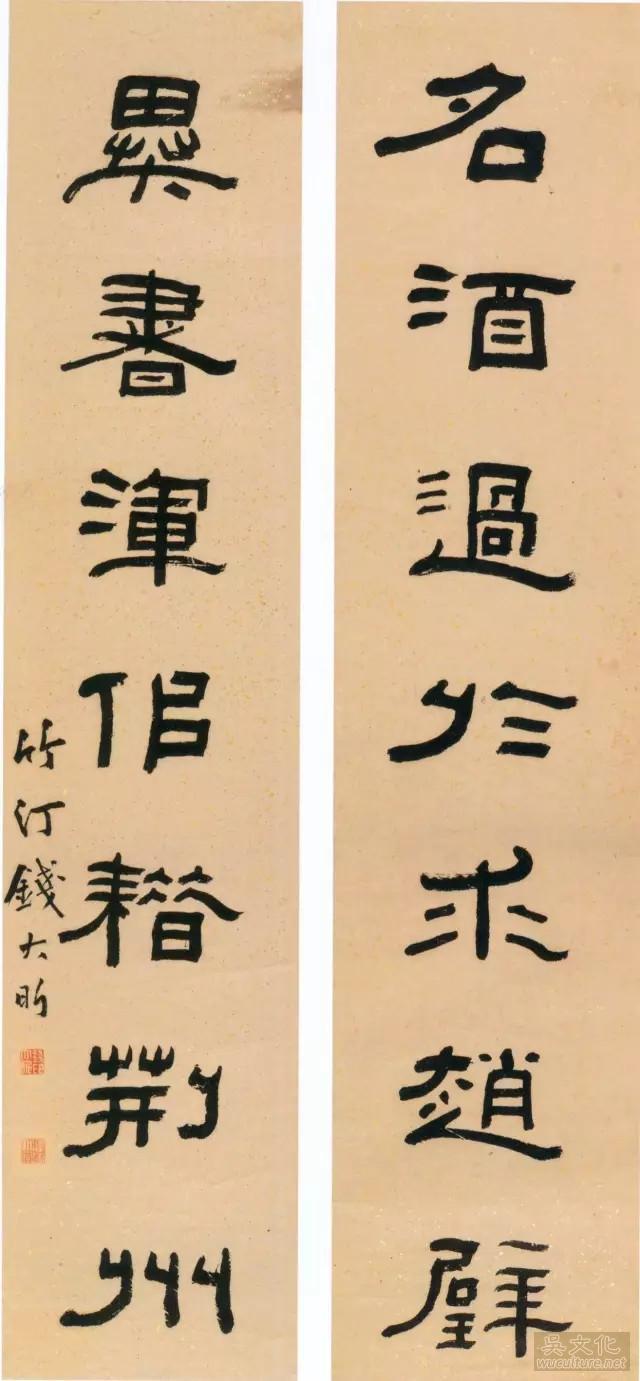 名酒過於求趙璧
異書渾佀耤荊州
竹汀錢大昕
吳文化
wuculture.net